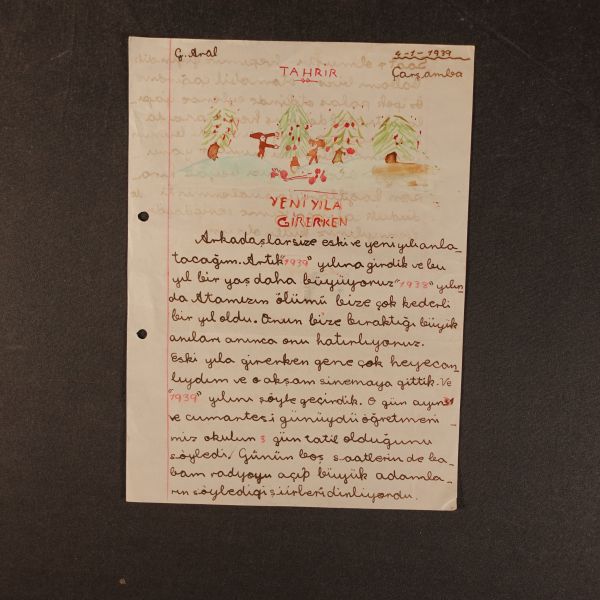 G. Aral
4-1-1939
Çarşamba
TAHRİR
YENİ YILA
GİRERKEN
Arkadaşlar size eski ve yeni yılı anla-
tacağım. Artık "1939" yılına girdik ve bu
yıl bir yaş daha büyüyoruz "1938" yılın-
da Atamızın ölümü bize çok kederli
bir yıl oldu. Onun bize bıraktığı büyük
anıları anınca onu hatırlıyoruz.
Eski yıla girerken gene çok heyecan-
lıydım ve o akşam sinemaya gittik. Ve
"1939" yılını şöyle geçirdik. O gün ayın 31
ve cumartesi günüydü öğretmeni
miz okulun 3 gün tatil olduğunu
söyledi. Günün boş saatlerin de ba-
bam radyoyu açıp büyük adamla-
rın söylediği şiirleri dinliyordu.